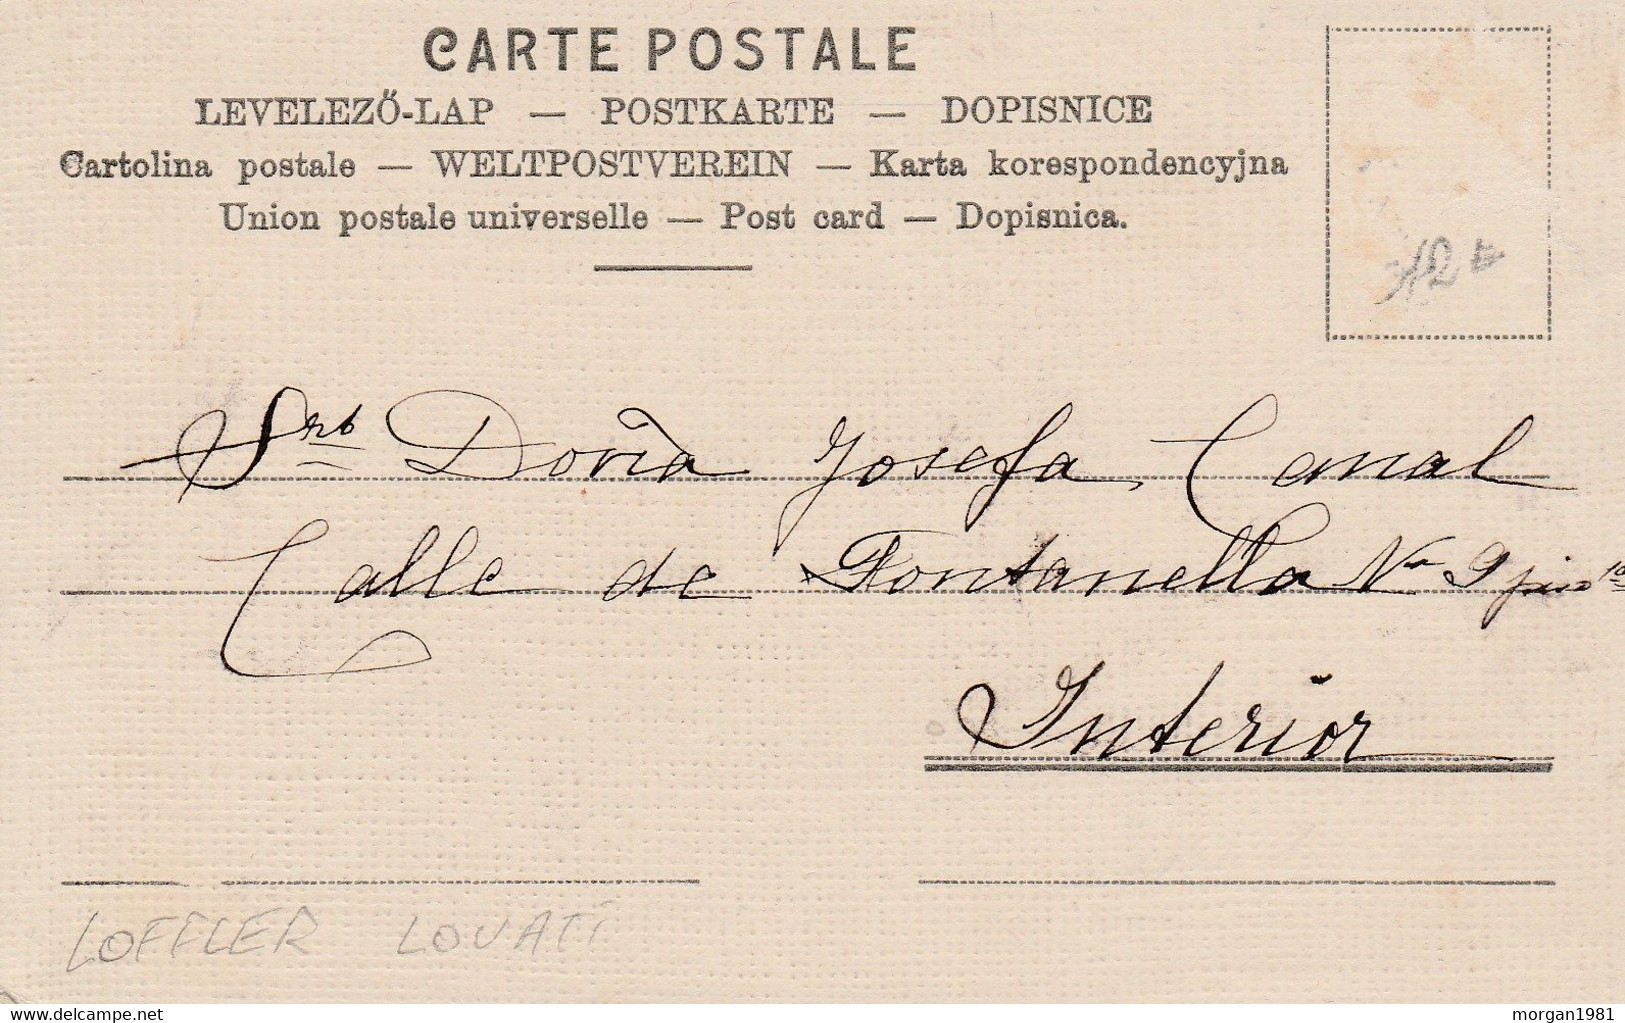 CARTE POSTALE
LEVELEZŐ-LAP — POSTKARTE — DOPISNICE
Cartolina postale — WELTPOSTVEREIN — Karta korespondencyjna
Union postale universelle — Post card — Dopisnica.
Sra Doña Josefa Canal
Calle de Fontanella No 9 piso 1o
Interior
LOFFLER LOVATI
www.delcampe.net
morgan1981